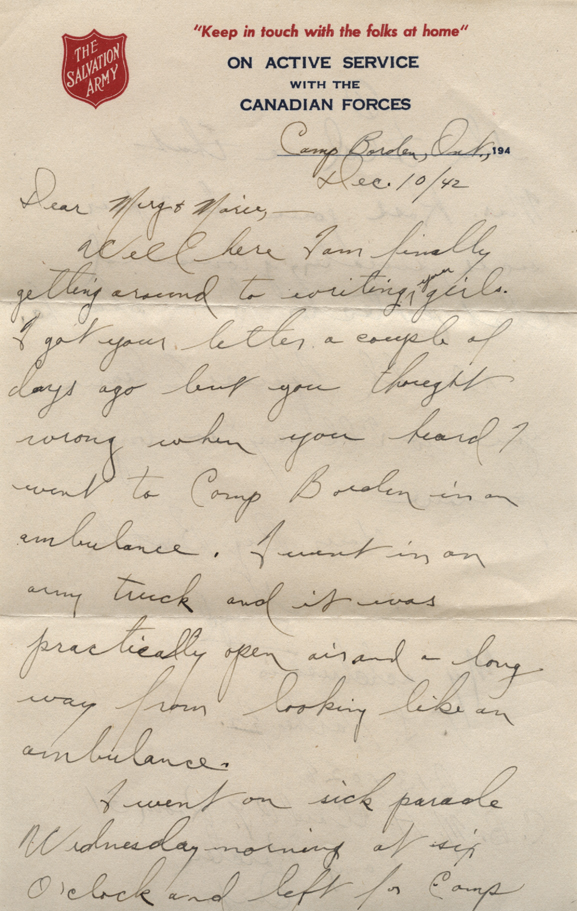 "Keep in touch with the folks at home"
THE
SALVATION
ARMY
ON ACTIVE SERVICE
WITH THE
CANADIAN FORCES
Camp Borden, Ont., 194
Dec. 10/42
Dear Marg & Marie,—
Well here I am finally
getting around to writing you girls.
I got your letter a couple of
days ago but you thought
wrong when you heard I
went to Camp Borden in an
ambulance. I went in an
army truck and it was
practically open air and a long
way from looking like an
ambulance.
I went on sick parade
Wednesday morning at six
O'clock and left for Camp